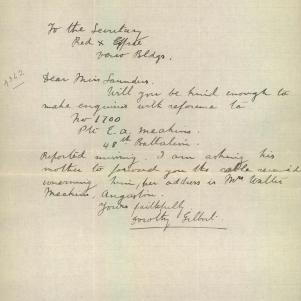 To the Secretary
Red X
Verco Bldgs.
4362
Dear Miss Saunders.
Will you be kind enough to
make enquiries with reference to
No 1700
Pte E. A. Meakins.
48th Battalion.
Reported missing. I am asking his
mother to forward you the cable received
concerning him, her address is Mrs Walter
Meakins, Angaston.
Yours faithfully.
Dorothy Gilbert.